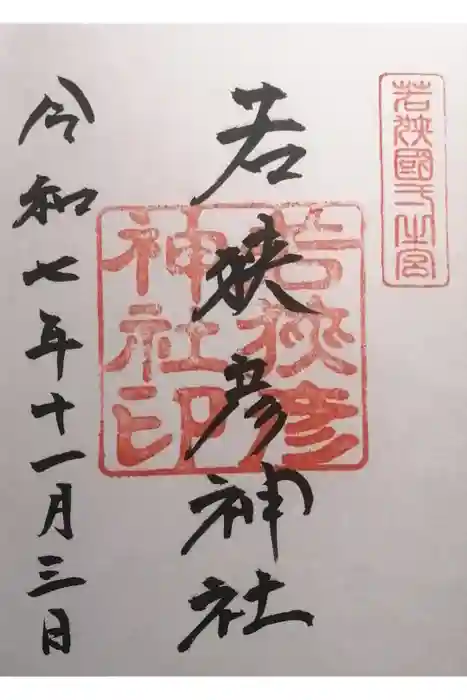 若狭國一之宮
若狭彦神社
若狭彦
神社印
令和七年十一月三日